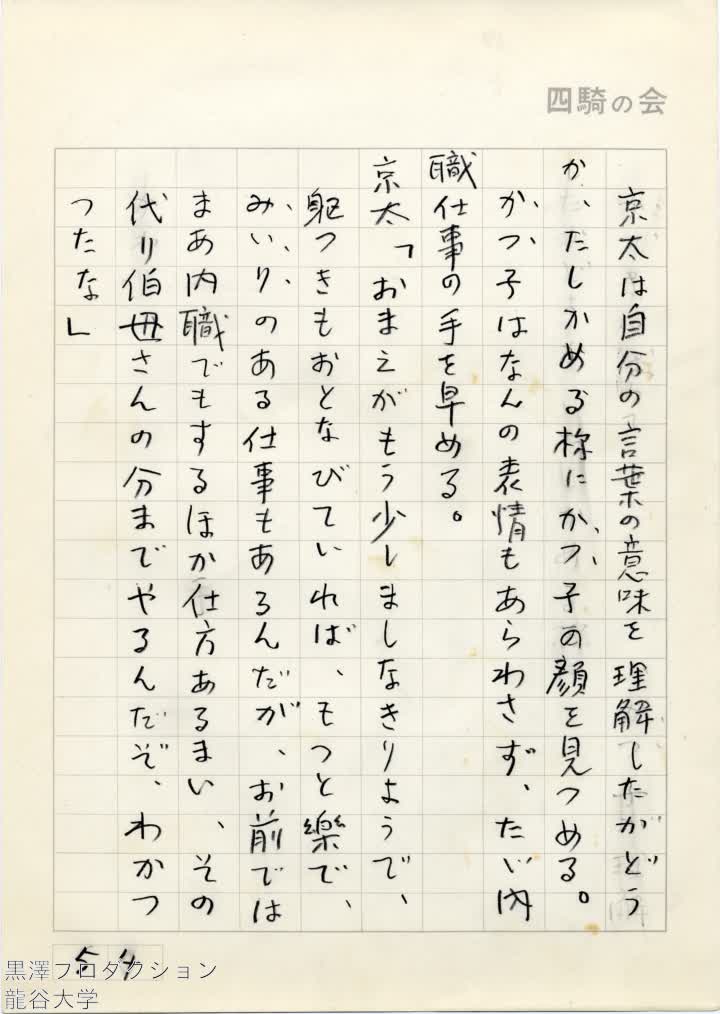 四騎の会
京太は自分の言葉の意味を理解したがどう
か、たしかめる様にかつ子の顔を見つめる。
かつ子はなんの表情もあらわさず、たゞ内
職仕事の手を早める。
京太「おまえがもう少しましなきりようで、
躯つきもおとなびていれば、もつと樂で、
みいりのある仕事もあるんだが、お前では
まあ内職でもするほか仕方あるまい、その
代り伯母さんの分までやるんだぞ、わかつ
つたな」
黒澤プロダクション
龍谷大学